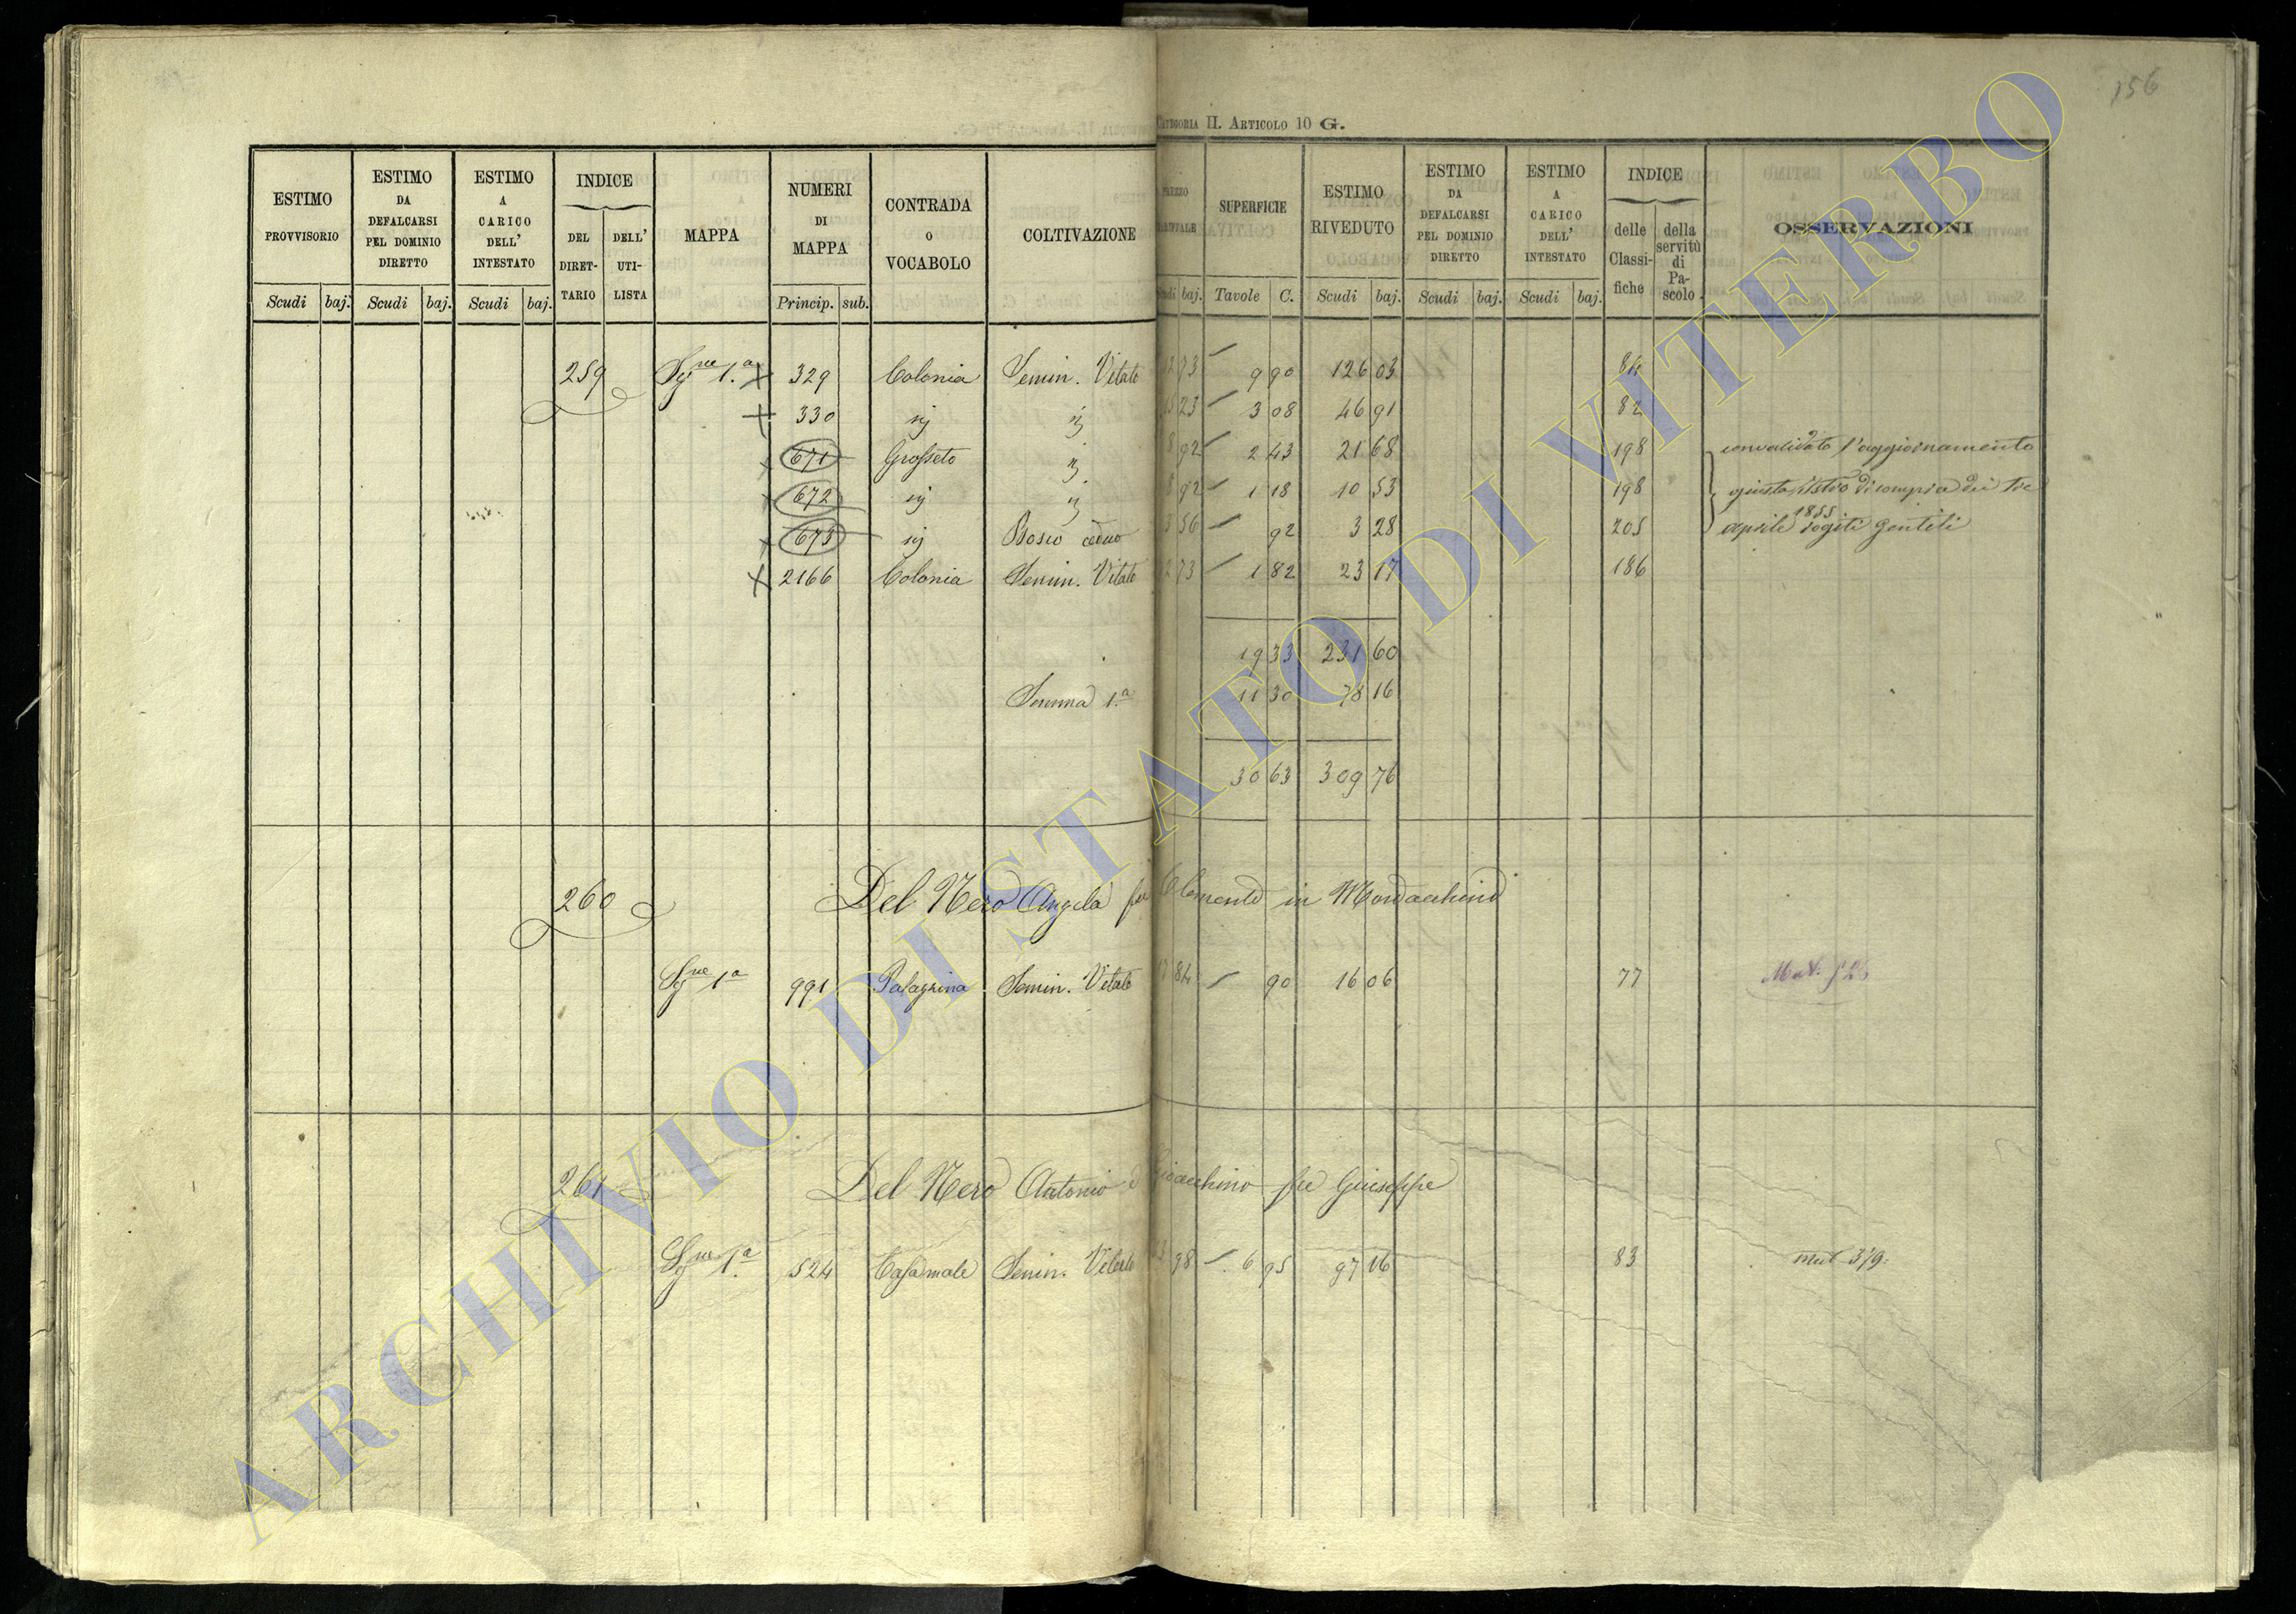 156
CATEGORIA II. ARTICOLO 10 G.
ESTIMO PROVVISORIO Scudi baj.
ESTIMO DA DEFALCARSI PEL DOMINIO DIRETTO Scudi baj.
ESTIMO A CARICO DELL' INTESTATO Scudi baj.
INDICE DEL DIRET- TARIO DELL' UTI- LISTA
MAPPA
NUMERI DI MAPPA Princip. sub.
CONTRADA O VOCABOLO
COLTIVAZIONE
baj.
SUPERFICIE Tavole C.
ESTIMO RIVEDUTO Scudi baj.
ESTIMO DA DEFALCARSI PEL DOMINIO DIRETTO Scudi baj.
ESTIMO A CARICO DELL' INTESTATO Scudi baj.
INDICE delle Classi- fiche della servitù di Pa- scolo
OSSERVAZIONI
259 1.a 329 Colonia Semin. Vitato 12 73 9 90 126 03 84
330 3 08 46 91 82
671 Grosseto 8 92 2 43 21 68 198 convalidato l'aggiornamento
672 8 92 1 18 10 53 198 di compra dei tre
673 Bosco ceduo 3 56 92 3 28 205 aprile 1855 rogiti Gentili
2166 Colonia Semin. Vitato 12 73 1 82 23 17 186
19 33 231 60
Somma 1.a 11 30 78 16
30 63 309 76
260 Del Nero Angela fu Clemente in Mordacchini
1a 991 Palagrina Semin. Vitato 17 84 90 16 06 77
261 Del Nero Antonio e Gioacchino fu Giuseppe
1.a 524 Casamale Semin. Vitato 13 98 6 95 97 16 83 mut 379.
ARCHIVIO DI STATO DI VITERBO